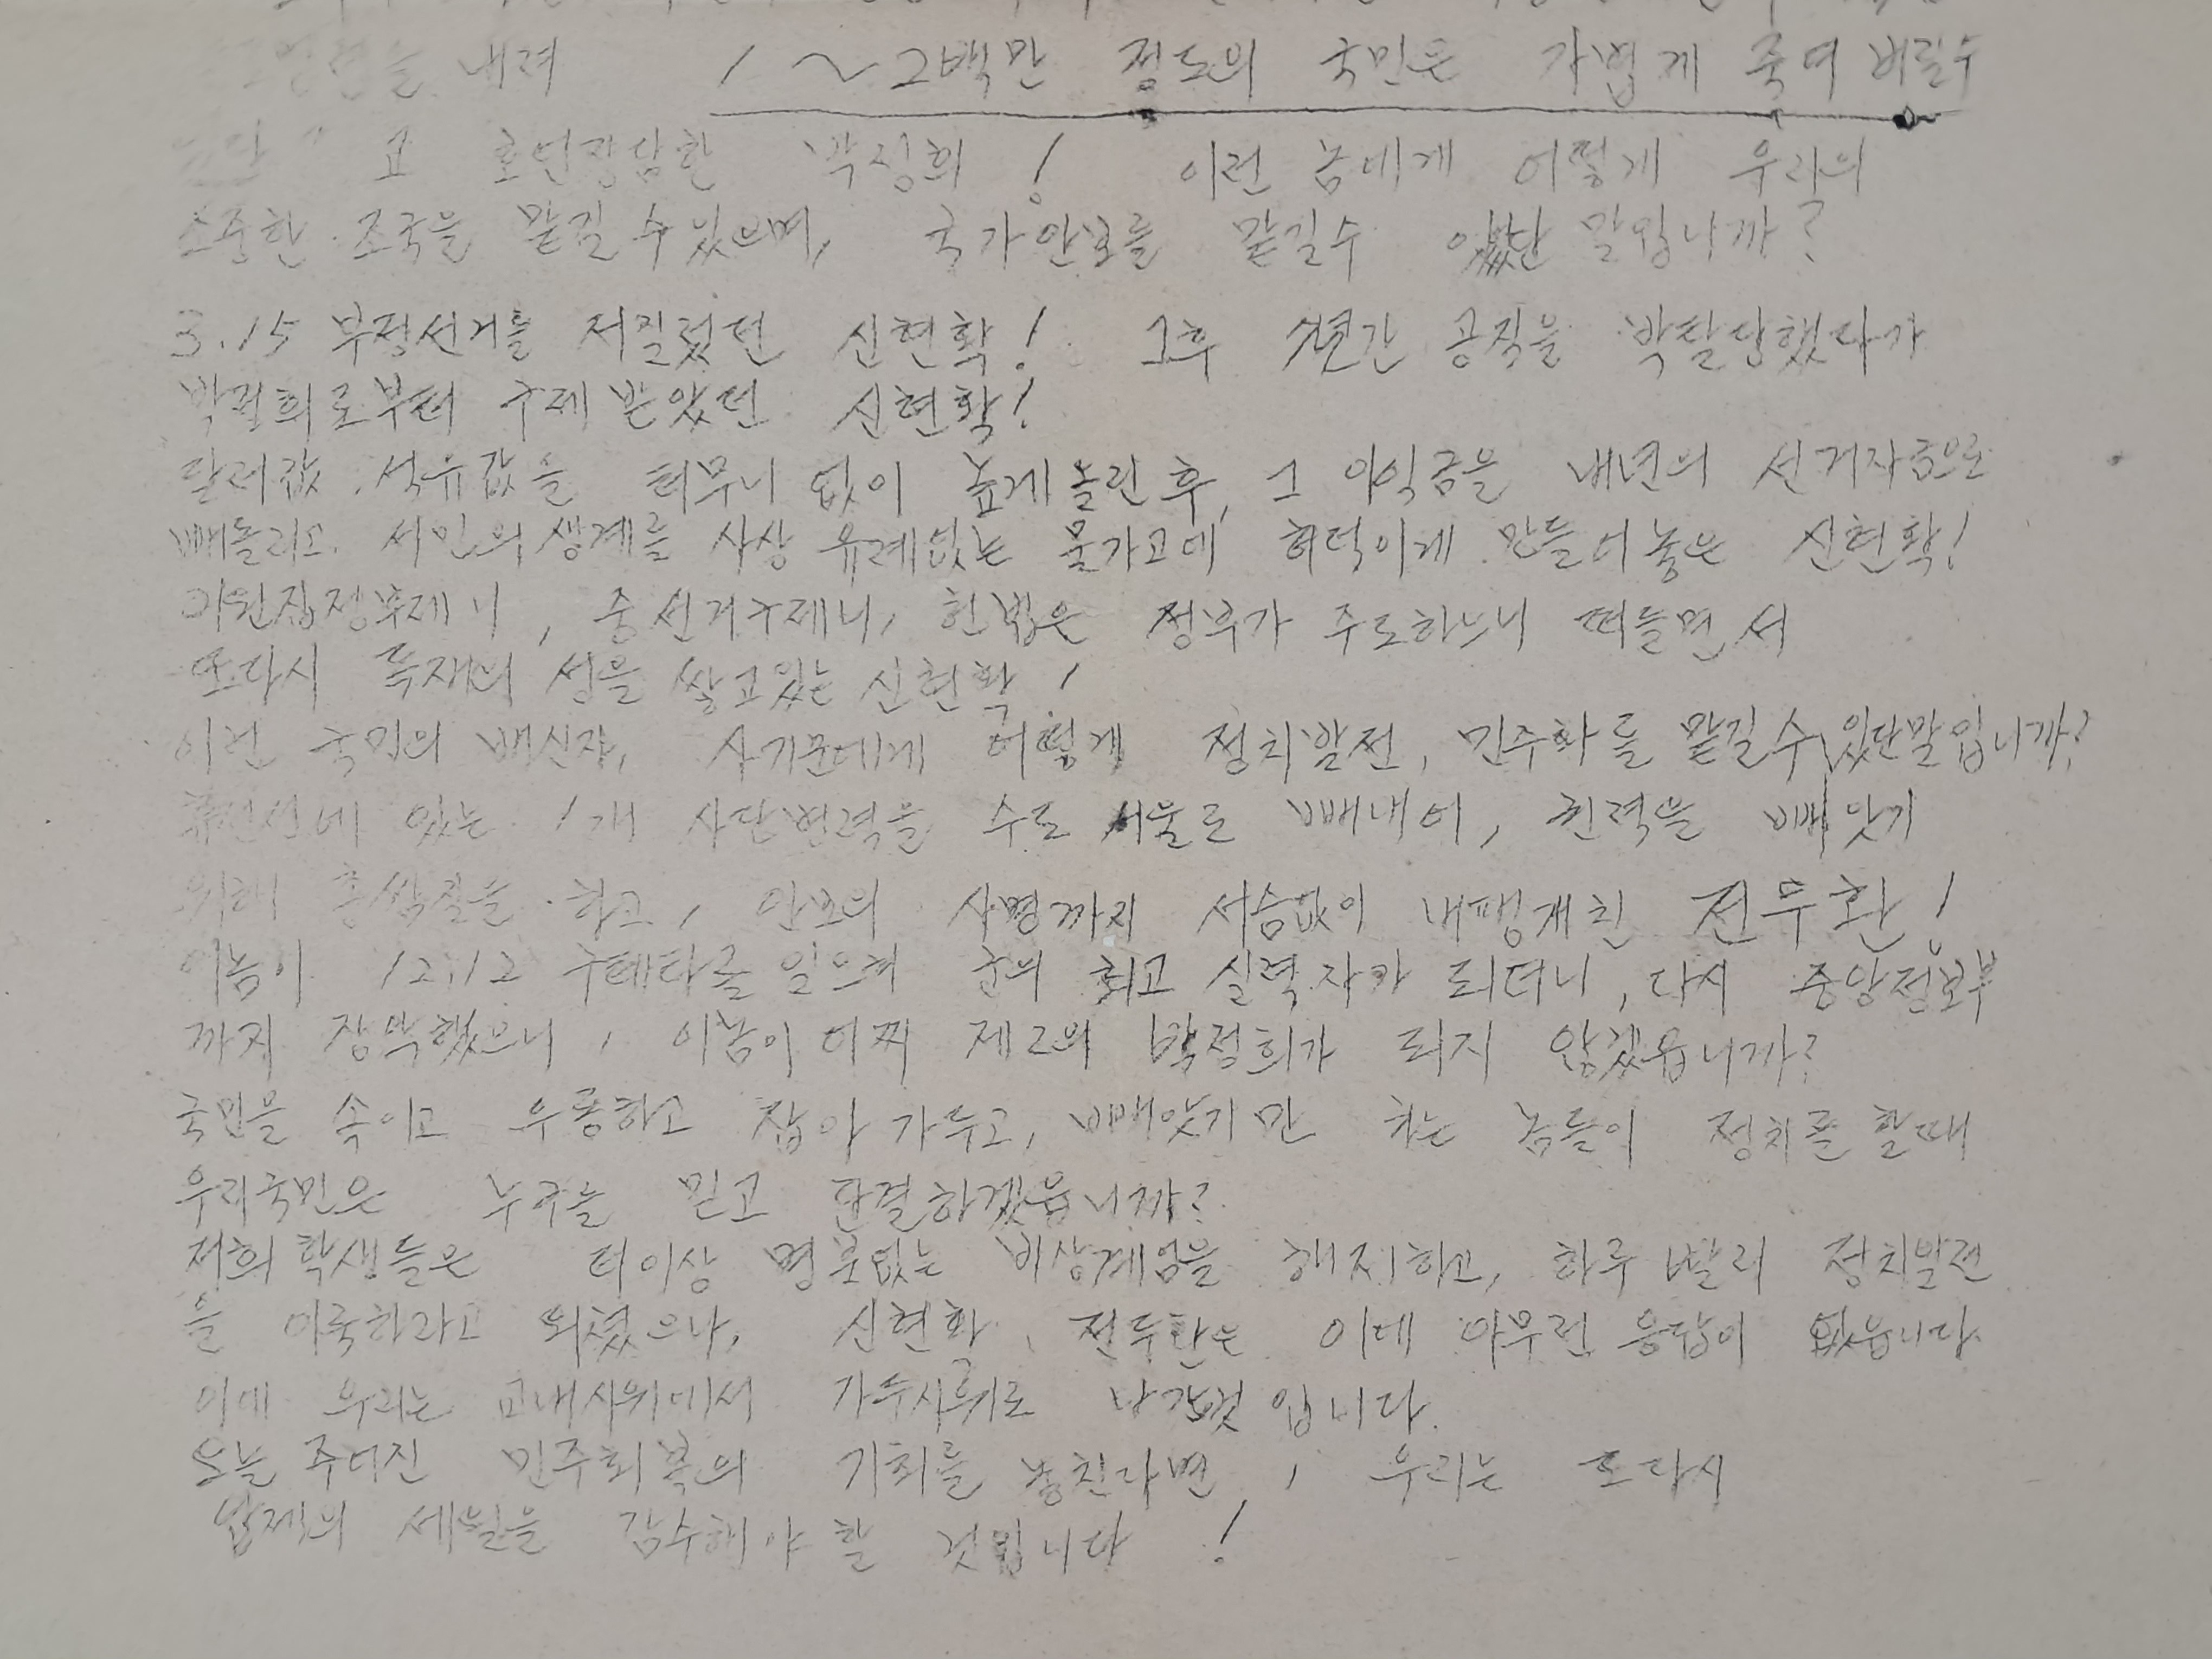 내려 1~2백만 정도의 국민은 가볍게 죽여 버릴수
고 호언장담한 박정희! 이런 놈에게 어떻게 우리의
소중한 조국을 맡길 수 있으며, 국가안보를 맡길수 있단 말입니까?
3.15 부정선거를 저질렀던 신현확! 그후 년간 공직을 박탈당했다가
박정희로부터 구제 받았던 신현확!
달러값, 석유값을 터무니 없이 높게 올린 후, 그 이익금을 내년의 선거자금으로
빼돌리고, 서민의 생계를 사상 유례없는 물가고에 허덕이게 만들어 놓은 신현확!
이원집정부제니, 중선거구제니, 헌법은 정부가 주도하느니 떠들면서
또다시 독재의 성을 쌓고있는 신현확!
이런 국민의 배신자, 사기꾼에게 어떻게 정치발전, 민주화를 맡길수 있단말입니까?
휴전선에 있는 1개 사단병력을 수도 서울로 빼내어, 권력을 빼앗기
위해 총쌈질을 하고, 안보의 사명까지 서슴없이 내팽개친 전두환!
이놈이 12.12 쿠테타를 일으켜 군의 최고 실력자가 되더니, 다시 중앙정보부
까지 장악했으니, 이놈이 어찌 제2의 박정희가 되지 않겠읍니까?
국민을 속이고 우롱하고 잡아 가두고, 빼앗기만 하는 놈들이 정치를 할때
우리국민은 누구를 믿고 단결하겠읍니까?
저희 학생들은 더이상 명분없는 비상계엄을 해지하고, 하루 빨리 정치발전
을 이룩하라고 외쳤으나, 신현확, 전두환은 이에 아무런 응답이 없읍니다.
이에 우리는 교내시위에서 가두시위로 나간것 입니다.
오늘 주어진 민주회복의 기회를 놓친다면, 우리는 또다시
압제의 세월을 감수해야 할 것입니다!